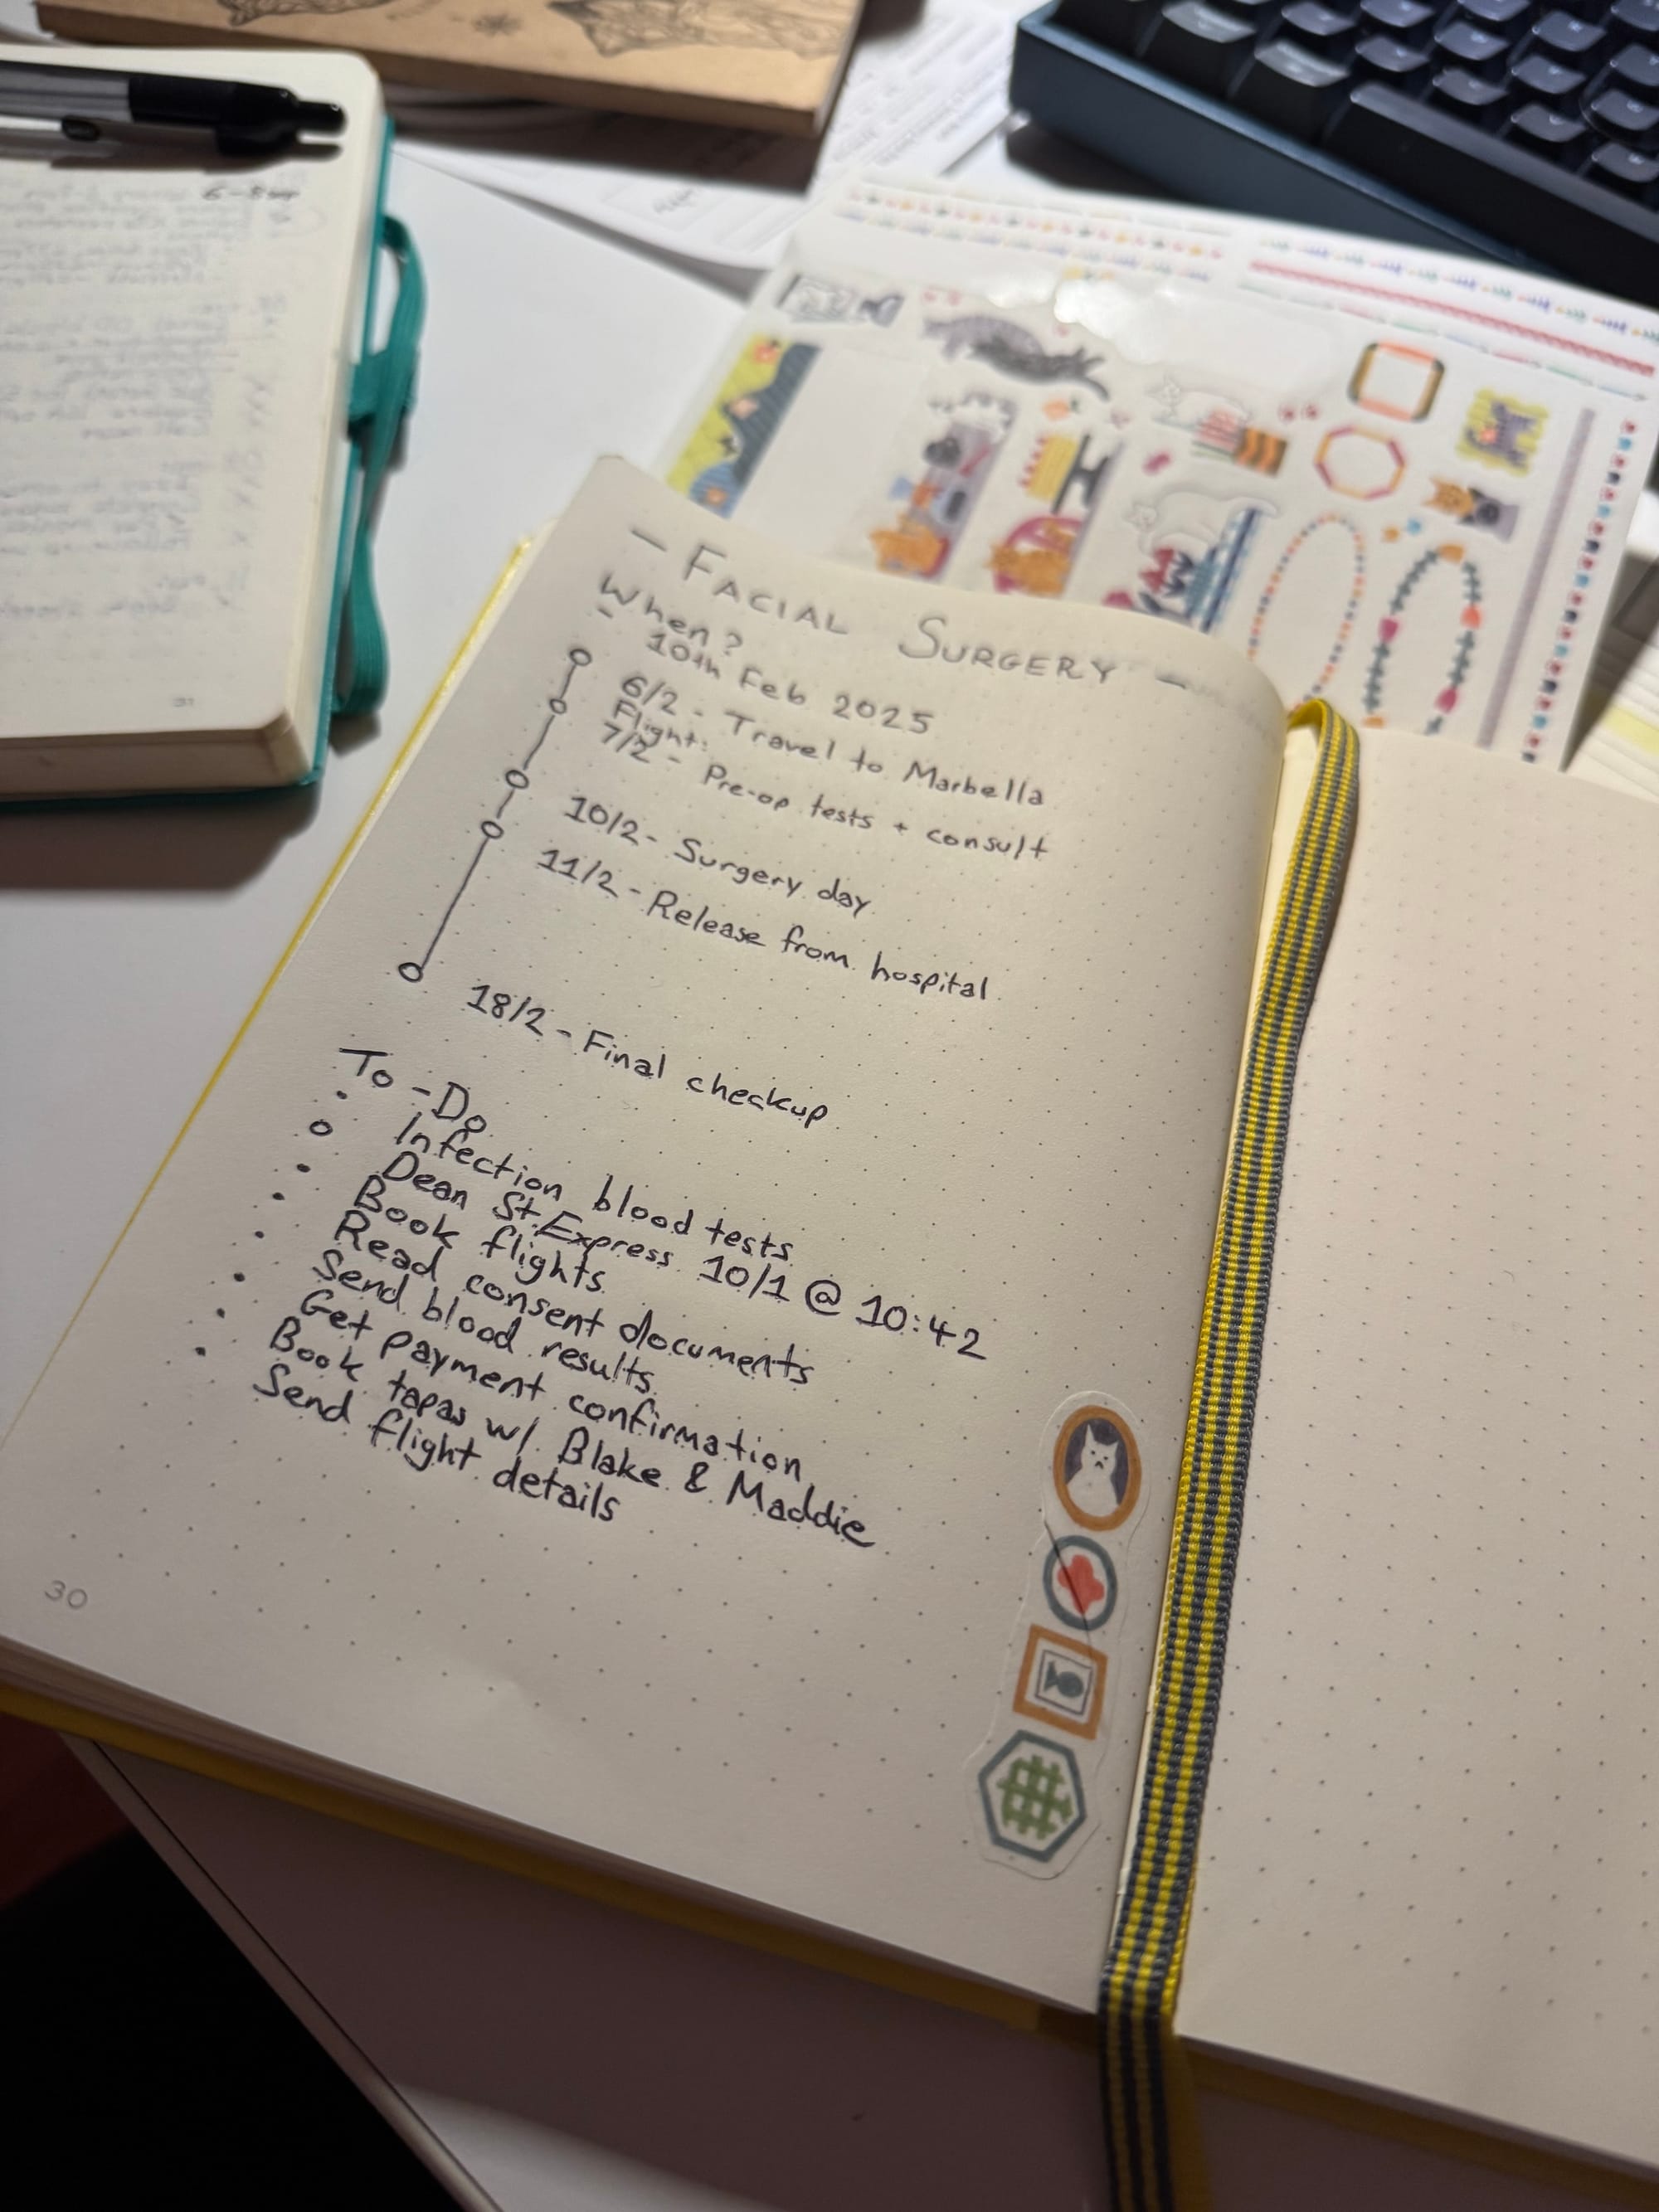 - FACIAL SURGERY -
When?
- 10th Feb 2025
6/2 - Travel to Marbella
Flight:
7/2 - Pre-op tests + consult
10/2 - Surgery day
11/2 - Release from hospital
18/2 - Final checkup
To-Do
Infection blood tests
Dean St. Express 10/1 @ 10:42
Book flights
Read consent documents
Send blood results
Get payment confirmation
Book tapas w/ Blake & Maddie
Send flight details
30
31